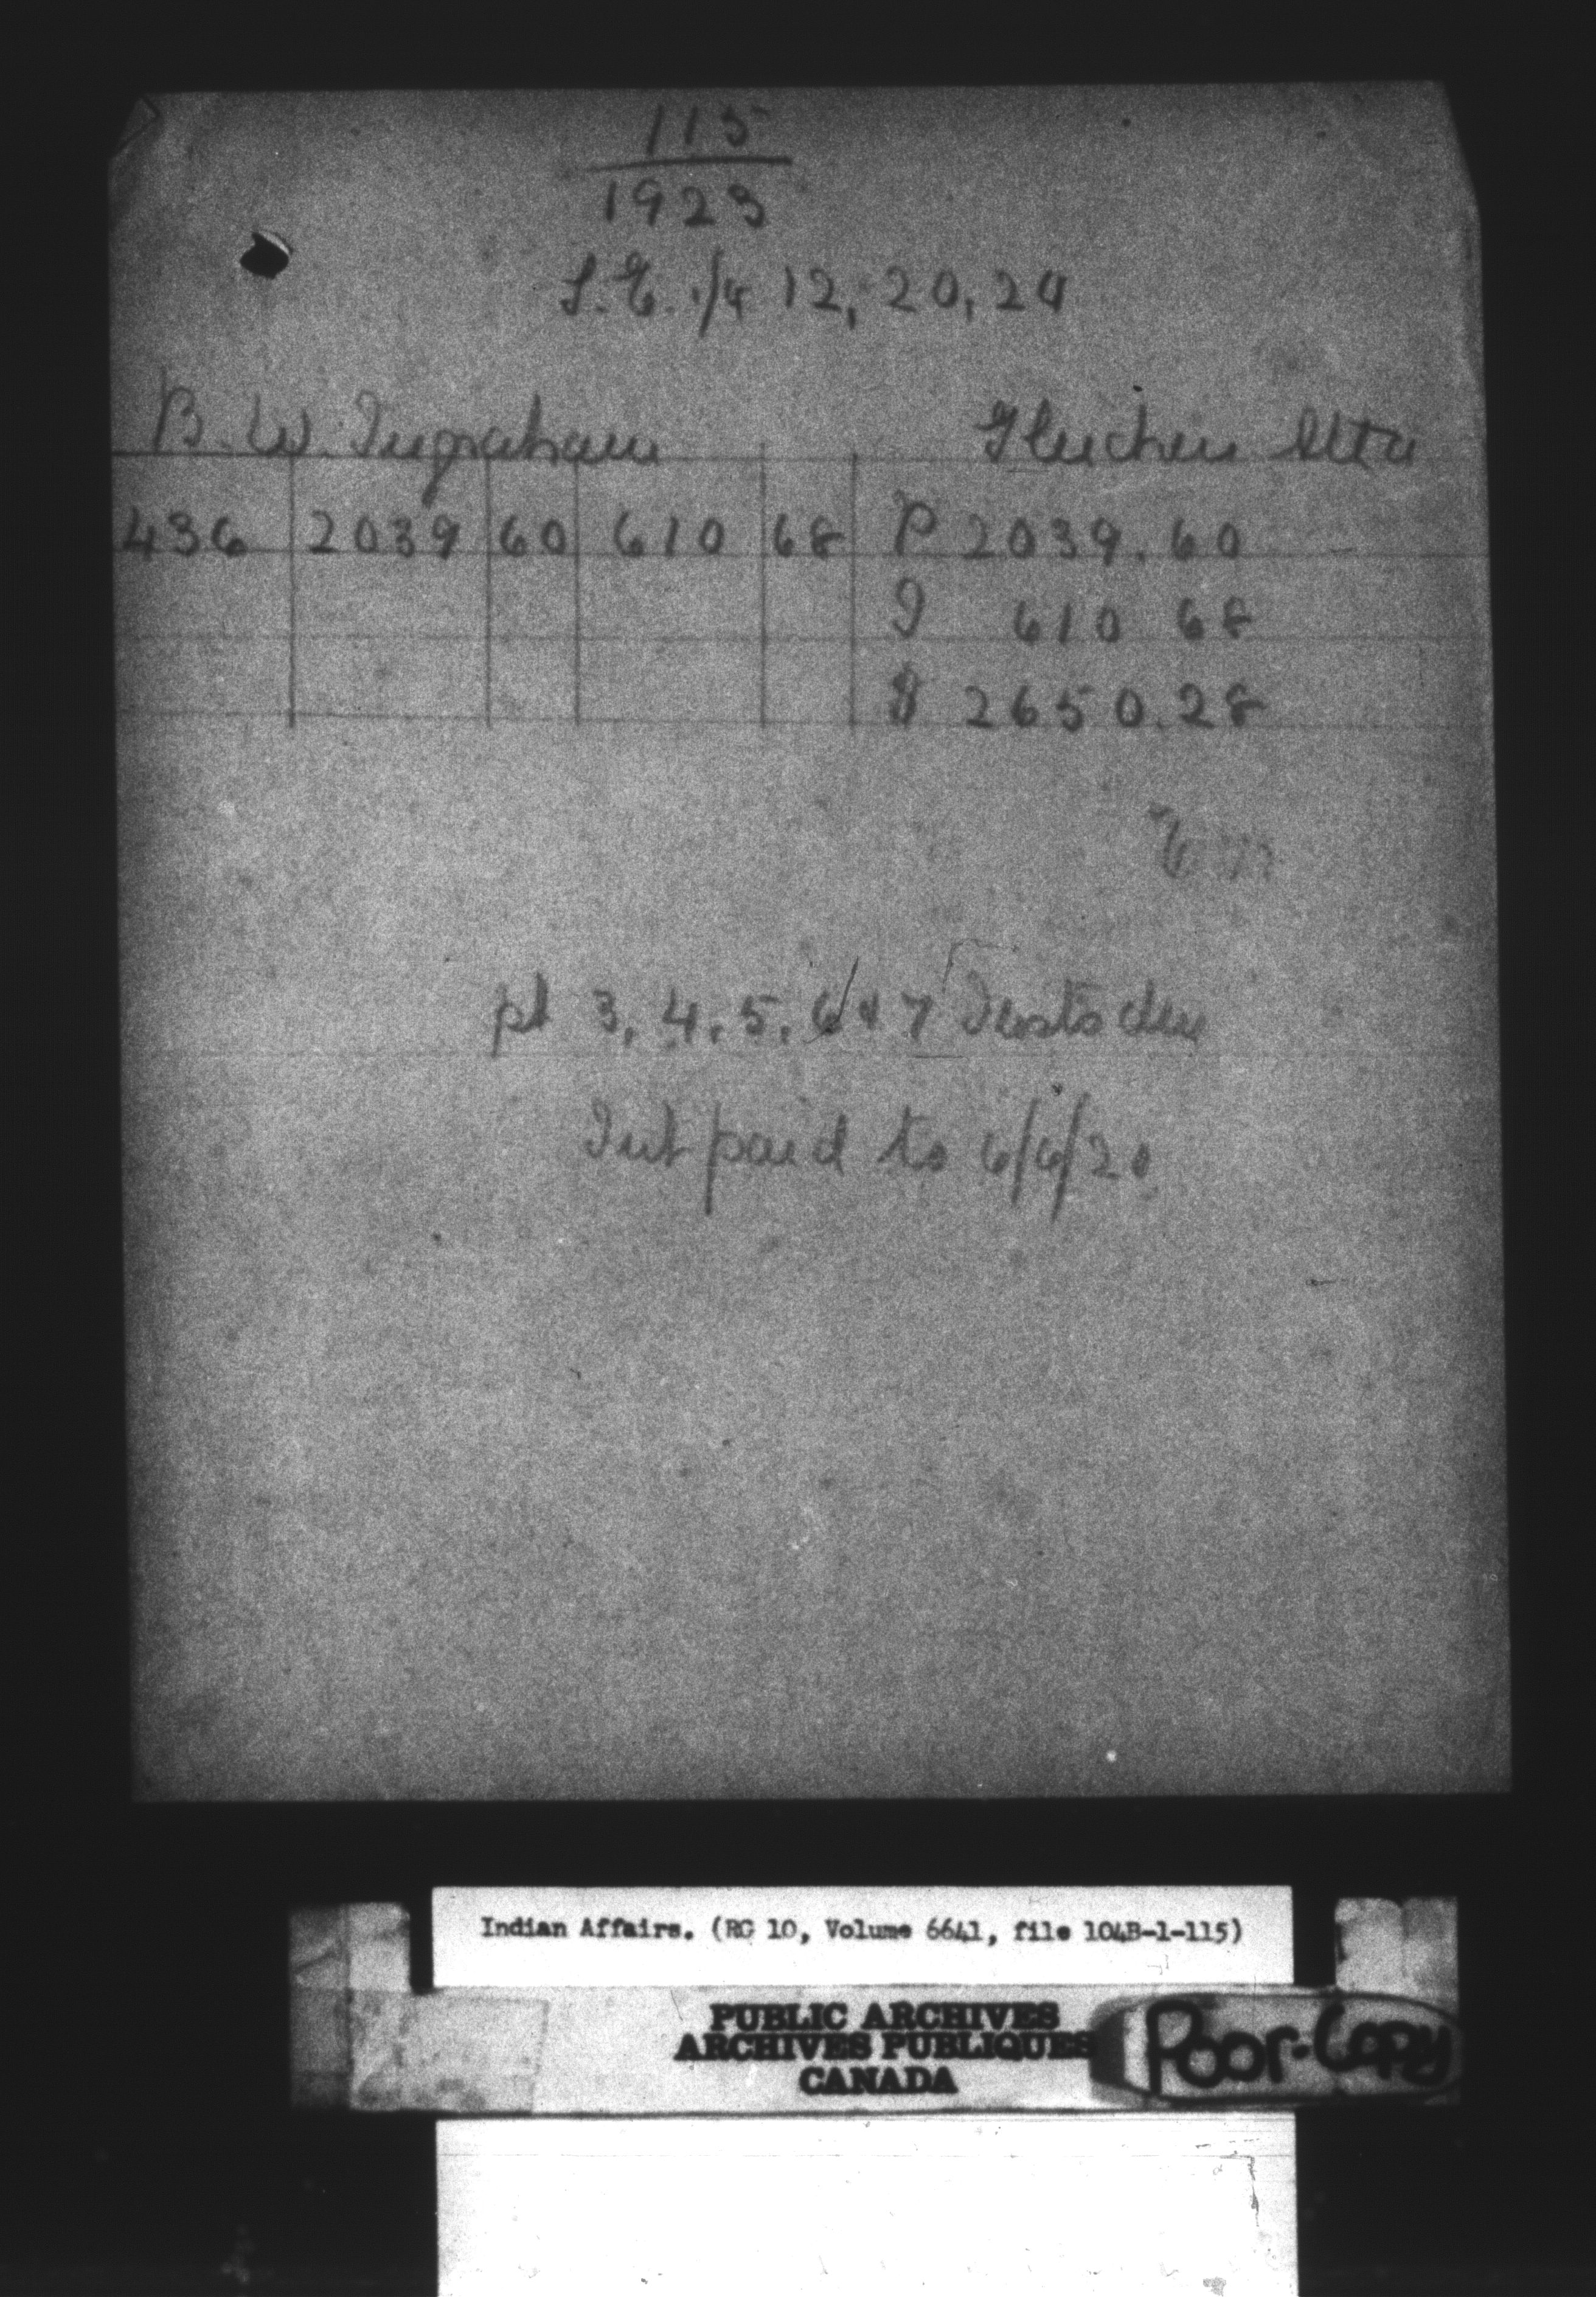 115
1923
S.E. 1/4 12, 20, 24
B. W. Ingraham Gleichen Alta
436 2039 60 610 68 P 2039.60
I 610 68
$ 2650.28
pt 3, 4, 5, 6 & 7 Insts due
Int paid to 6/6/20
Indian Affairs. (RG 10, Volume 6641, file 104B-1-115)
PUBLIC ARCHIVES
ARCHIVES PUBLIQUES
CANADA
Poor-Copy